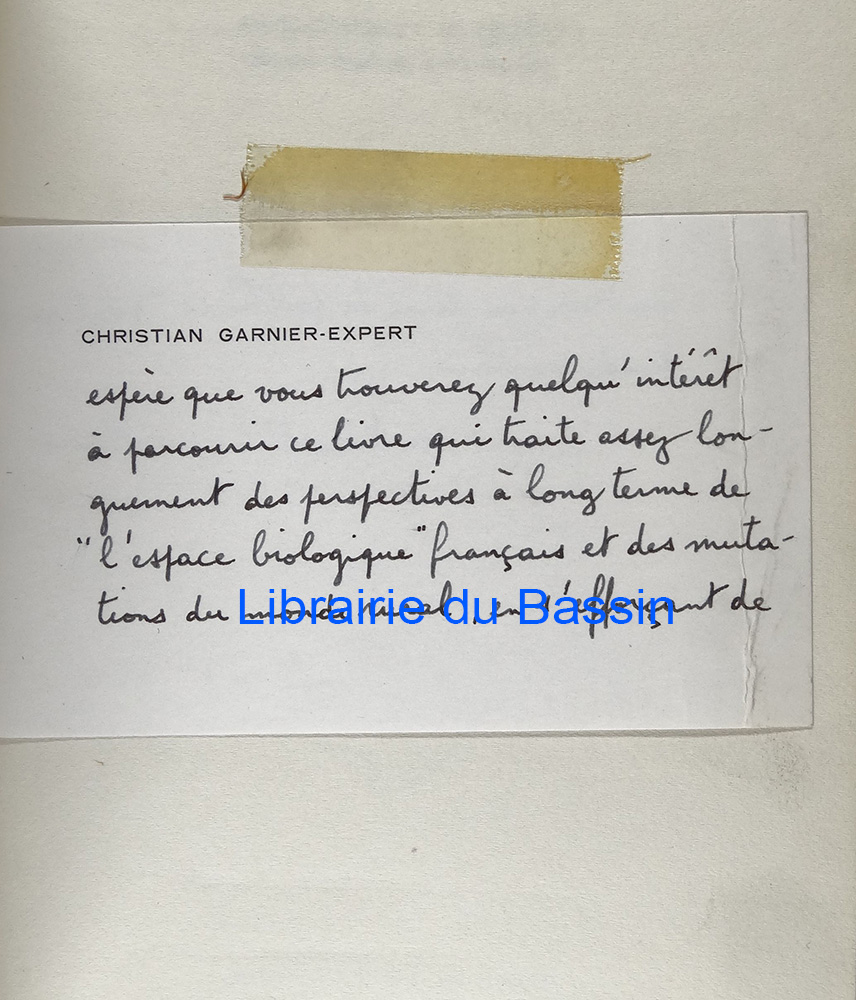 CHRISTIAN GARNIER-EXPERT
espère que vous trouverez quelqu'intérêt
à parcourir ce livre qui traite assez lon-
guement des perspectives à long terme de
"l'espace biologique" français et des muta-
tions du monde rural, en s'efforçant de
Librairie du Bassin